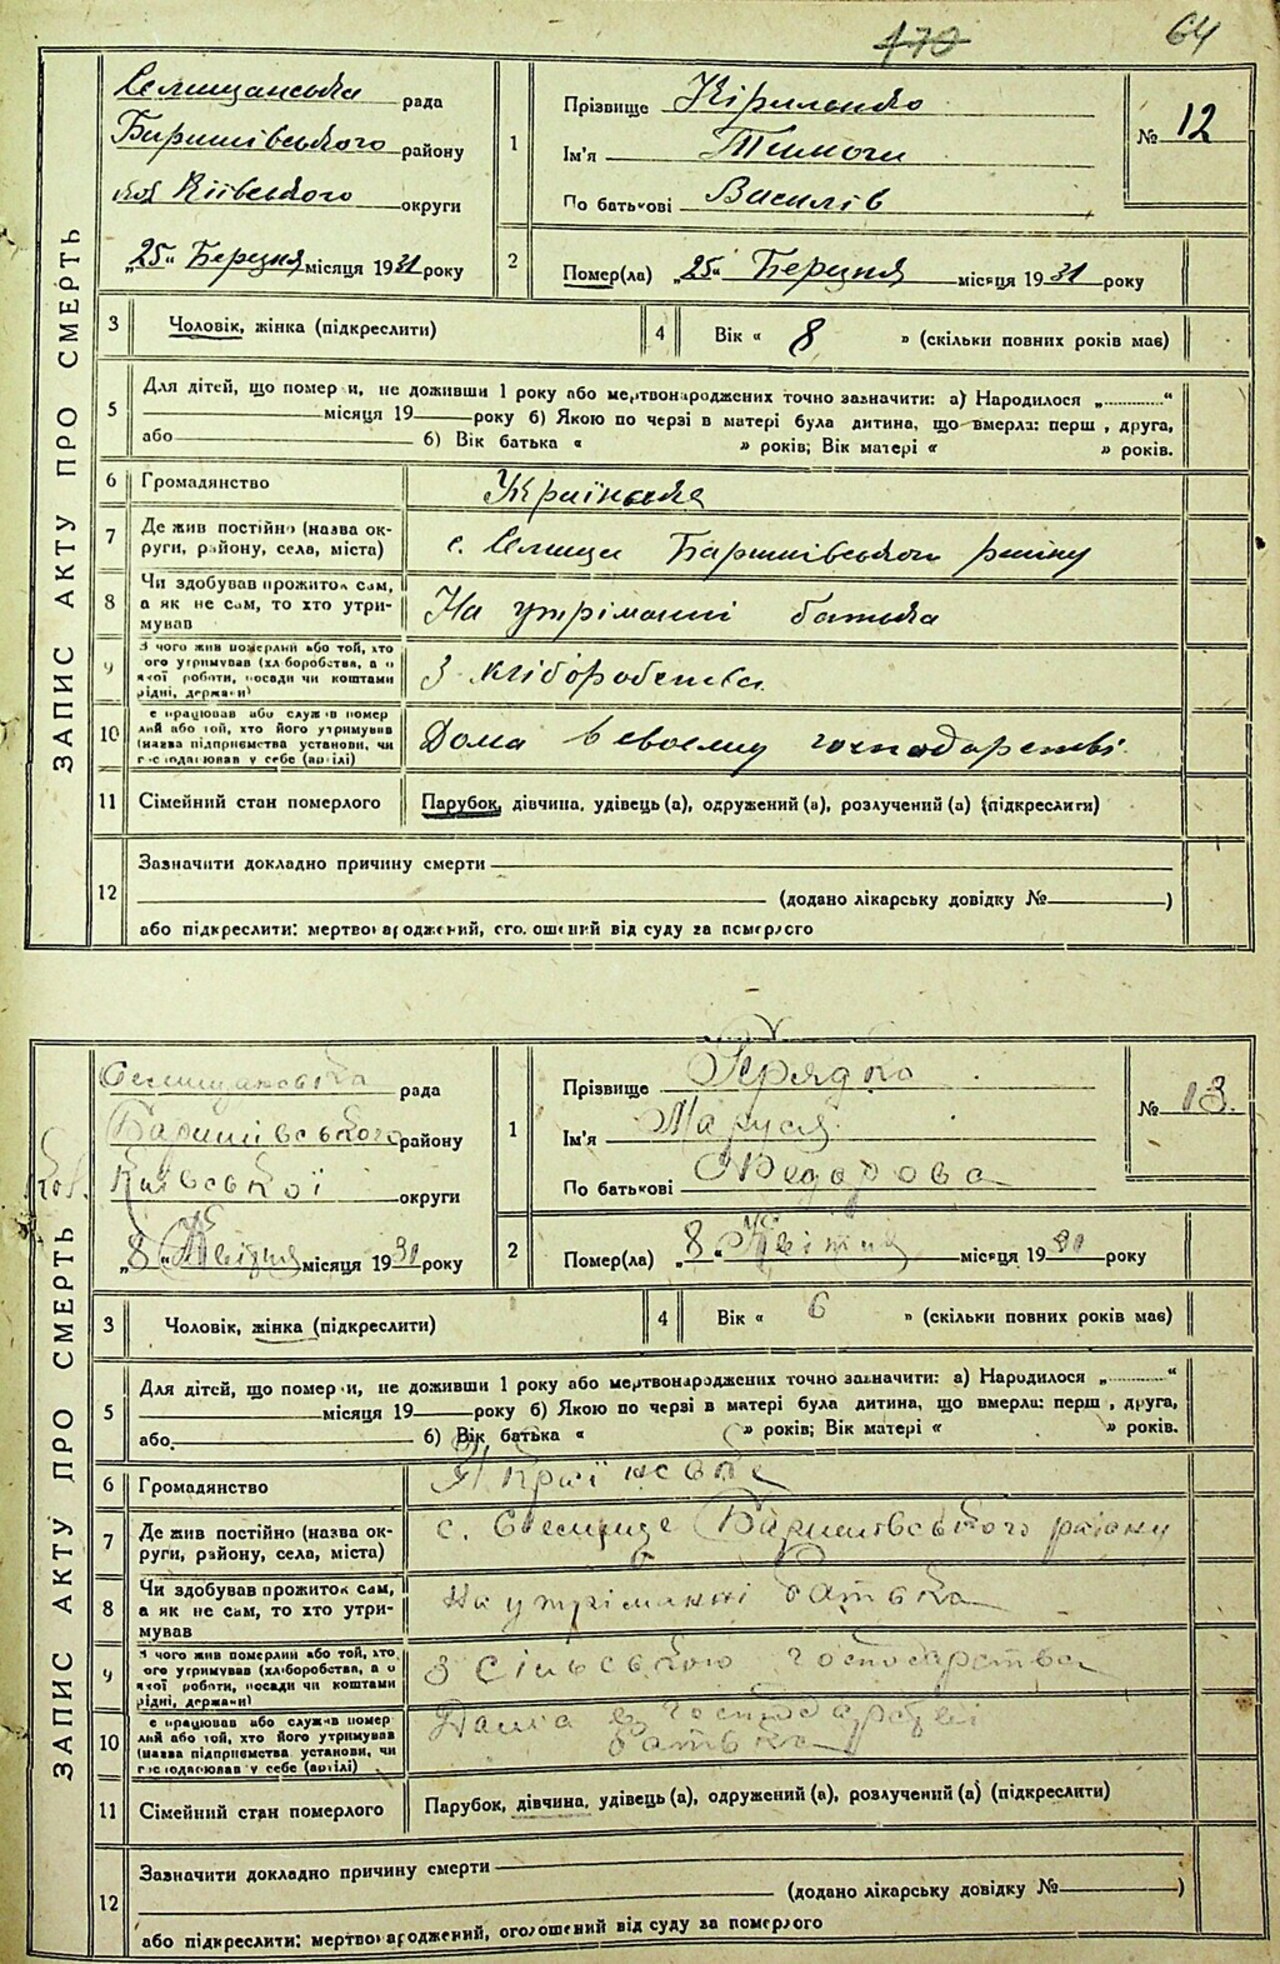 170
64
ЗАПИС АКТУ ПРО СМЕРТЬ
Селищанська рада
Баришівського району
Київського округи
„25" Березня місяця 1931 року
1
Прізвище Кириленко
Ім'я Тимоги
По батькові Василів
№ 12
2
Помер(ла) „25" Березня місяця 1931 року
3 Чоловік, жінка (підкреслити)
4 Вік « 8 » (скільки повних років має)
5
Для дітей, що помер и, не доживши 1 року або мертвонароджених точно зазначити: а) Народилося „ "
місяця 19 року б) Якою по черзі в матері була дитина, що вмерла: перш , друга,
або б) Вік батька « » років; Вік матері « » років.
6 Громадянство Українська
7
Де жив постійно (назва ок-
руги, району, села, міста)
с. Селище Баришівського району
8
Чи здобував прожиток сам,
а як не сам, то хто утри-
мував
На утріманні батька
9
З чого жив померлий або той, хто
ого утримував (хліборобства, а о
якої роботи, посади чи коштами
рідні, держави)
З хліборобства
10
е працював або служив помер
лий або той, хто його утримував
(назва підприємства установи, чи
г сподаював у себе (артілі)
Дома в своєму господарстві
11 Сімейний стан померлого Парубок, дівчина, удівець (а), одружений (а), розлучений (а) (підкреслити)
12
Зазначити докладно причину смерти
(додано лікарську довідку № )
або підкреслити: мертвонароджений, оголошений від суду за померлого
ЗАПИС АКТУ ПРО СМЕРТЬ
Селищанська рада
Баришівського району
Київської округи
„8" Квітня місяця 1931 року
1
Прізвище Герядко
Ім'я Маруся
По батькові Федорова
№ 13.
2
Помер(ла) „8" Квітня місяця 1931 року
3 Чоловік, жінка (підкреслити)
4 Вік « 6 » (скільки повних років має)
5
Для дітей, що помер и, не доживши 1 року або мертвонароджених точно зазначити: а) Народилося „ "
місяця 19 року б) Якою по черзі в матері була дитина, що вмерла: перш , друга,
або б) Вік батька « » років; Вік матері « » років.
6 Громадянство Українська
7
Де жив постійно (назва ок-
руги, району, села, міста)
с. Селище Баришівського району
8
Чи здобував прожиток сам,
а як не сам, то хто утри-
мував
на утріманні батька
9
З чого жив померлий або той, хто
ого утримував (хліборобства, а о
якої роботи, посади чи коштами
рідні, держави)
З Сільського господарства
10
е працював або служив помер
лий або той, хто його утримував
(назва підприємства установи, чи
г сподаював у себе (артілі)
Дома в господарстві
батька
11 Сімейний стан померлого Парубок, дівчина, удівець (а), одружений (а), розлучений (а) (підкреслити)
12
Зазначити докладно причину смерти
(додано лікарську довідку № )
або підкреслити: мертвонароджений, оголошений від суду за померлого